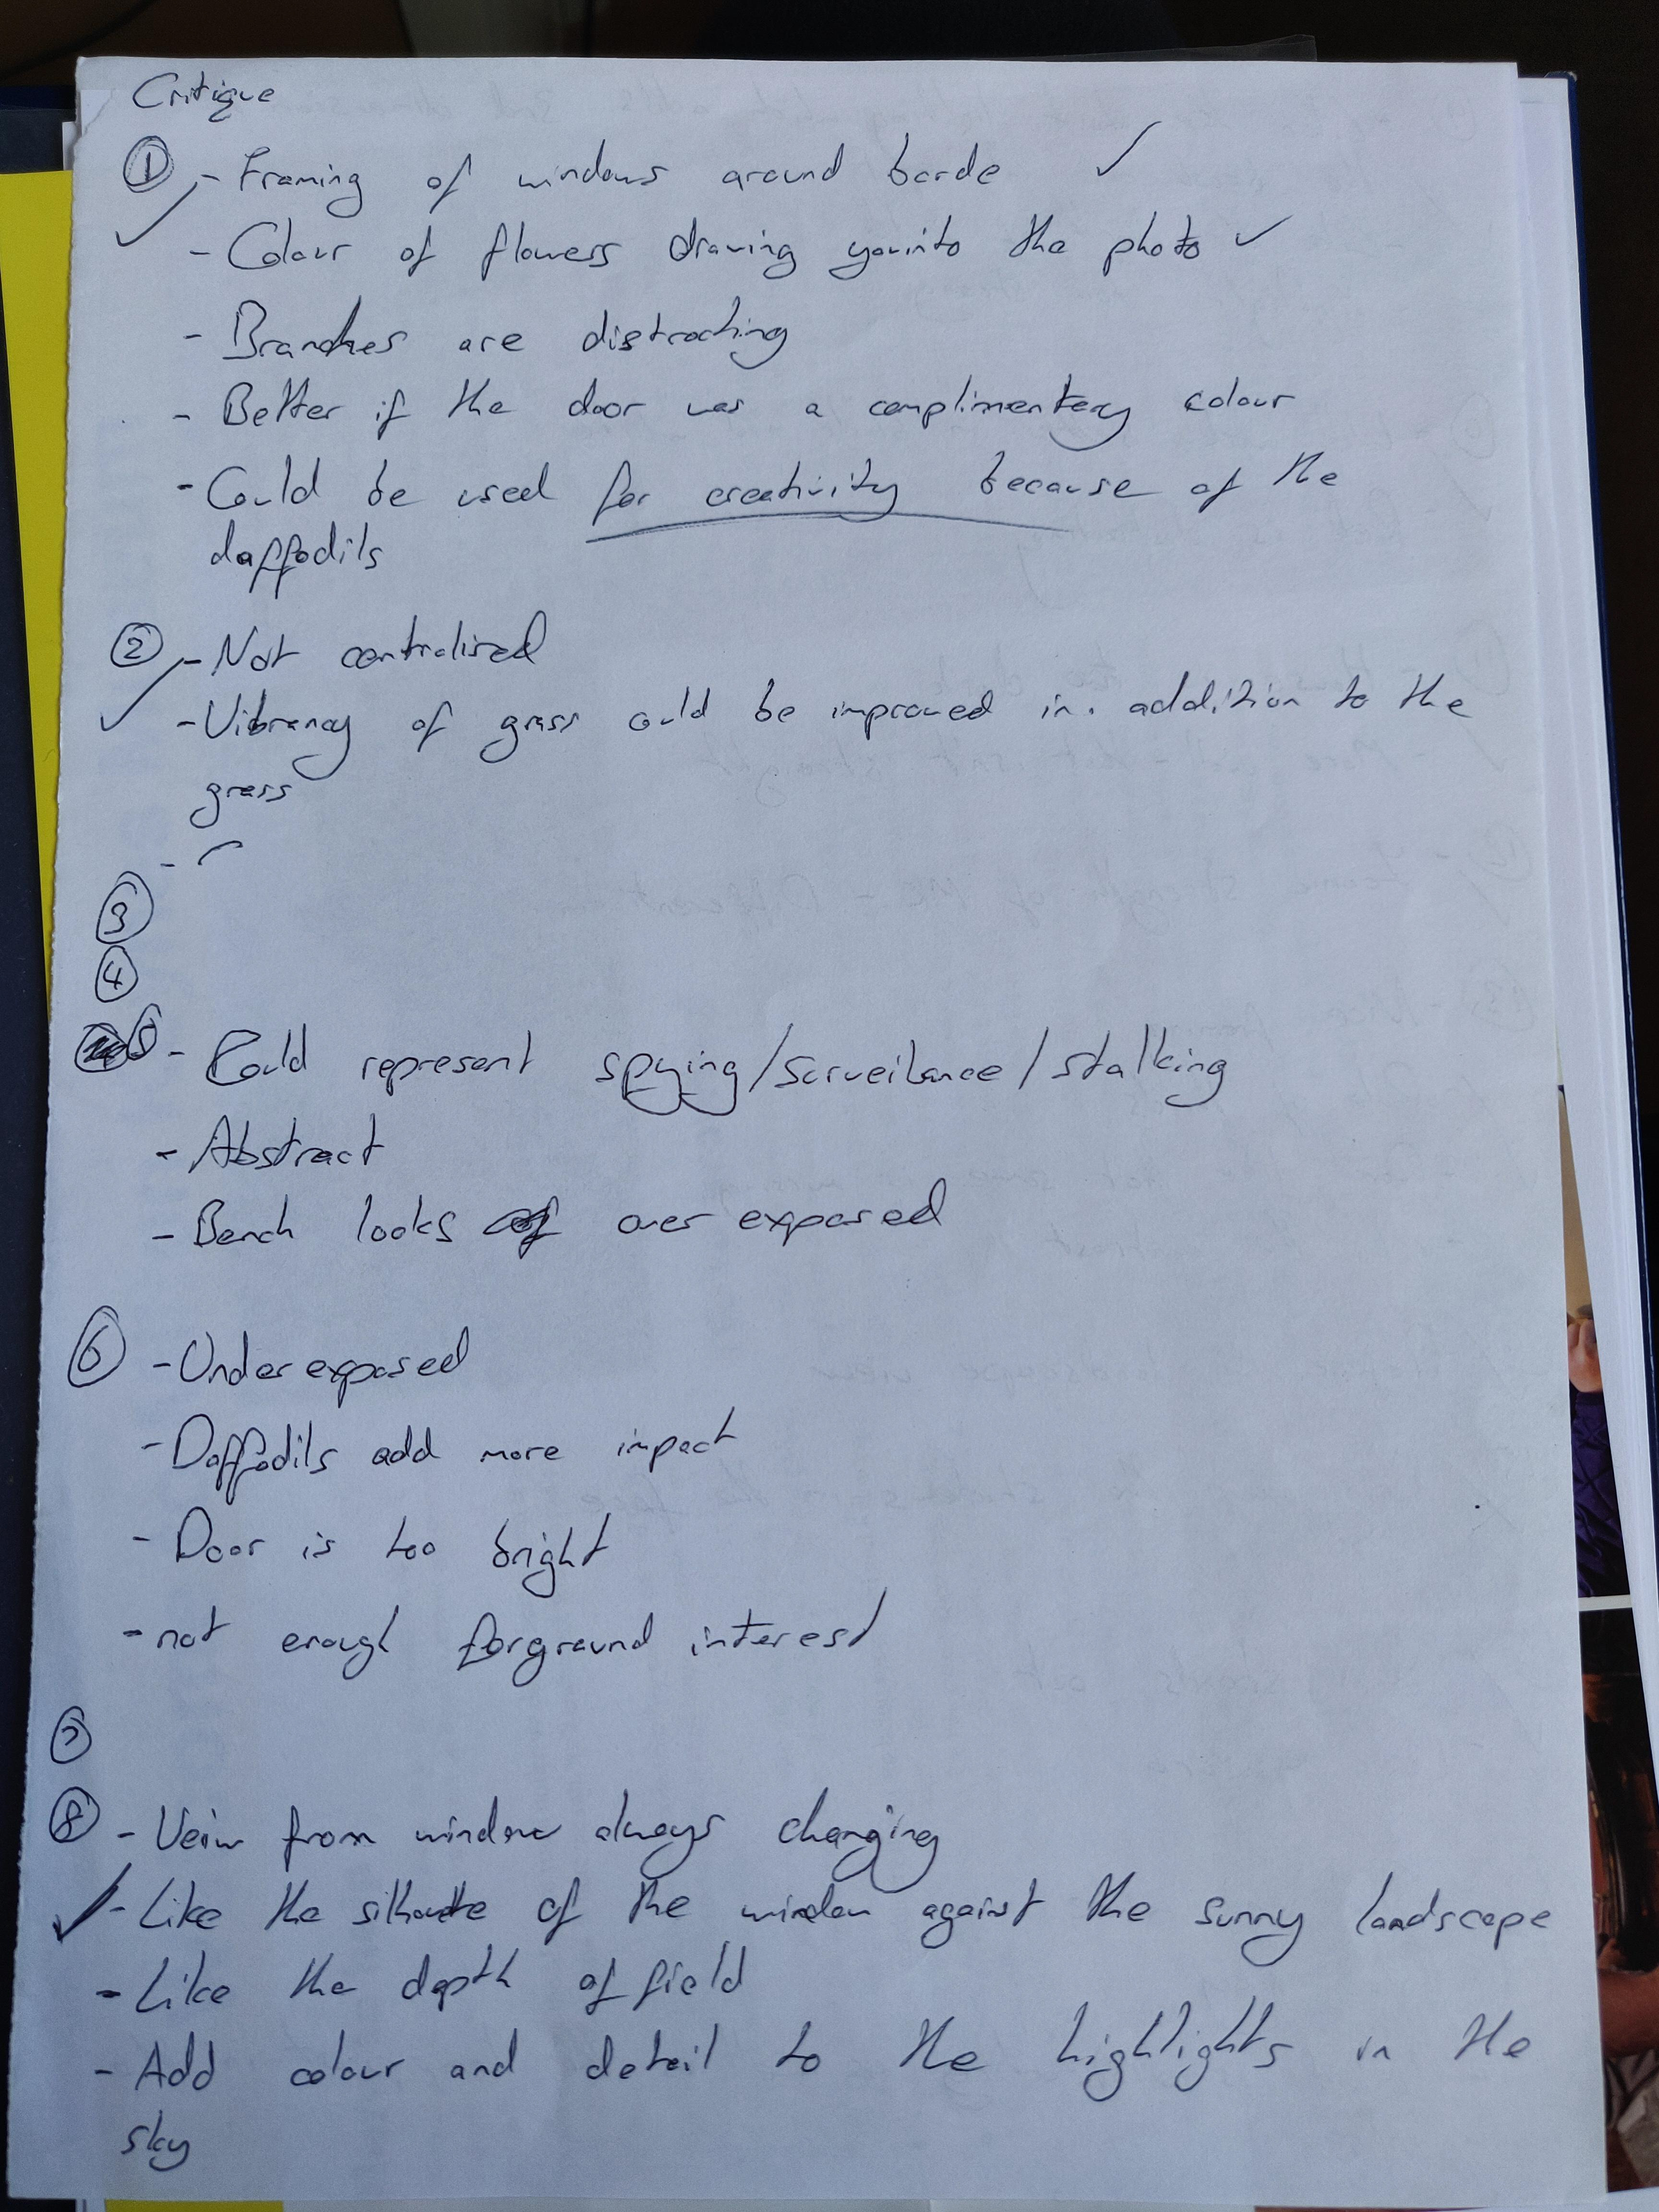 Critique
① - Framing of windows around borde ✓
✓ - Colour of flowers drawing you into the photo ✓
- Branches are distracting
- Better if the door was a complimentery colour
- Could be used for creativity because of the
daffodils
② - Not centralised
✓ - Vibrancy of grass could be improved in addition to the
grass
-
③
④
5 - Could represent spying/surveilance/stalking
- Abstract
- Bench looks over exposed
⑥ - Under exposed
- Daffodils add more impact
- Door is too bright
- not enough forground interest
⑦
⑧ - Veiw from window always changing
✓ - Like the silhouette of the window against the sunny landscape
- Like the depth of field
- Add colour and detail to the highlights in the
sky